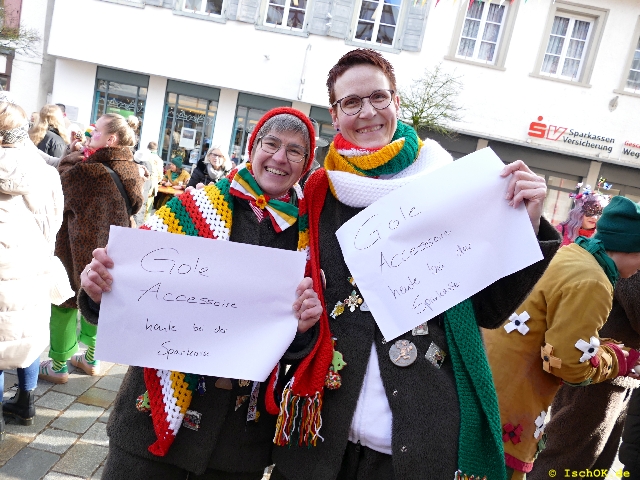 Gole
Accessoire
heute bei der
Sparkasse
Gole
Accessoire
heute bei der
Sparkasse
Sparkassen
Versicherung
© IschOK.de